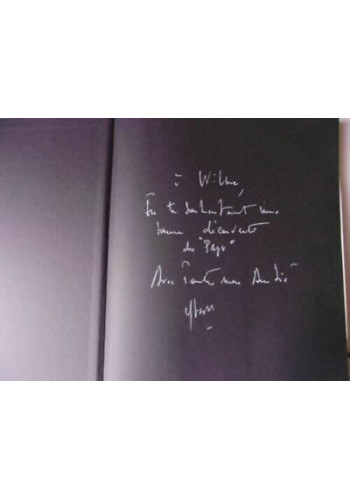 à Wilma,
En te souhaitant une
bonne découverte
du "Pays"
Avec toute mon Amitié